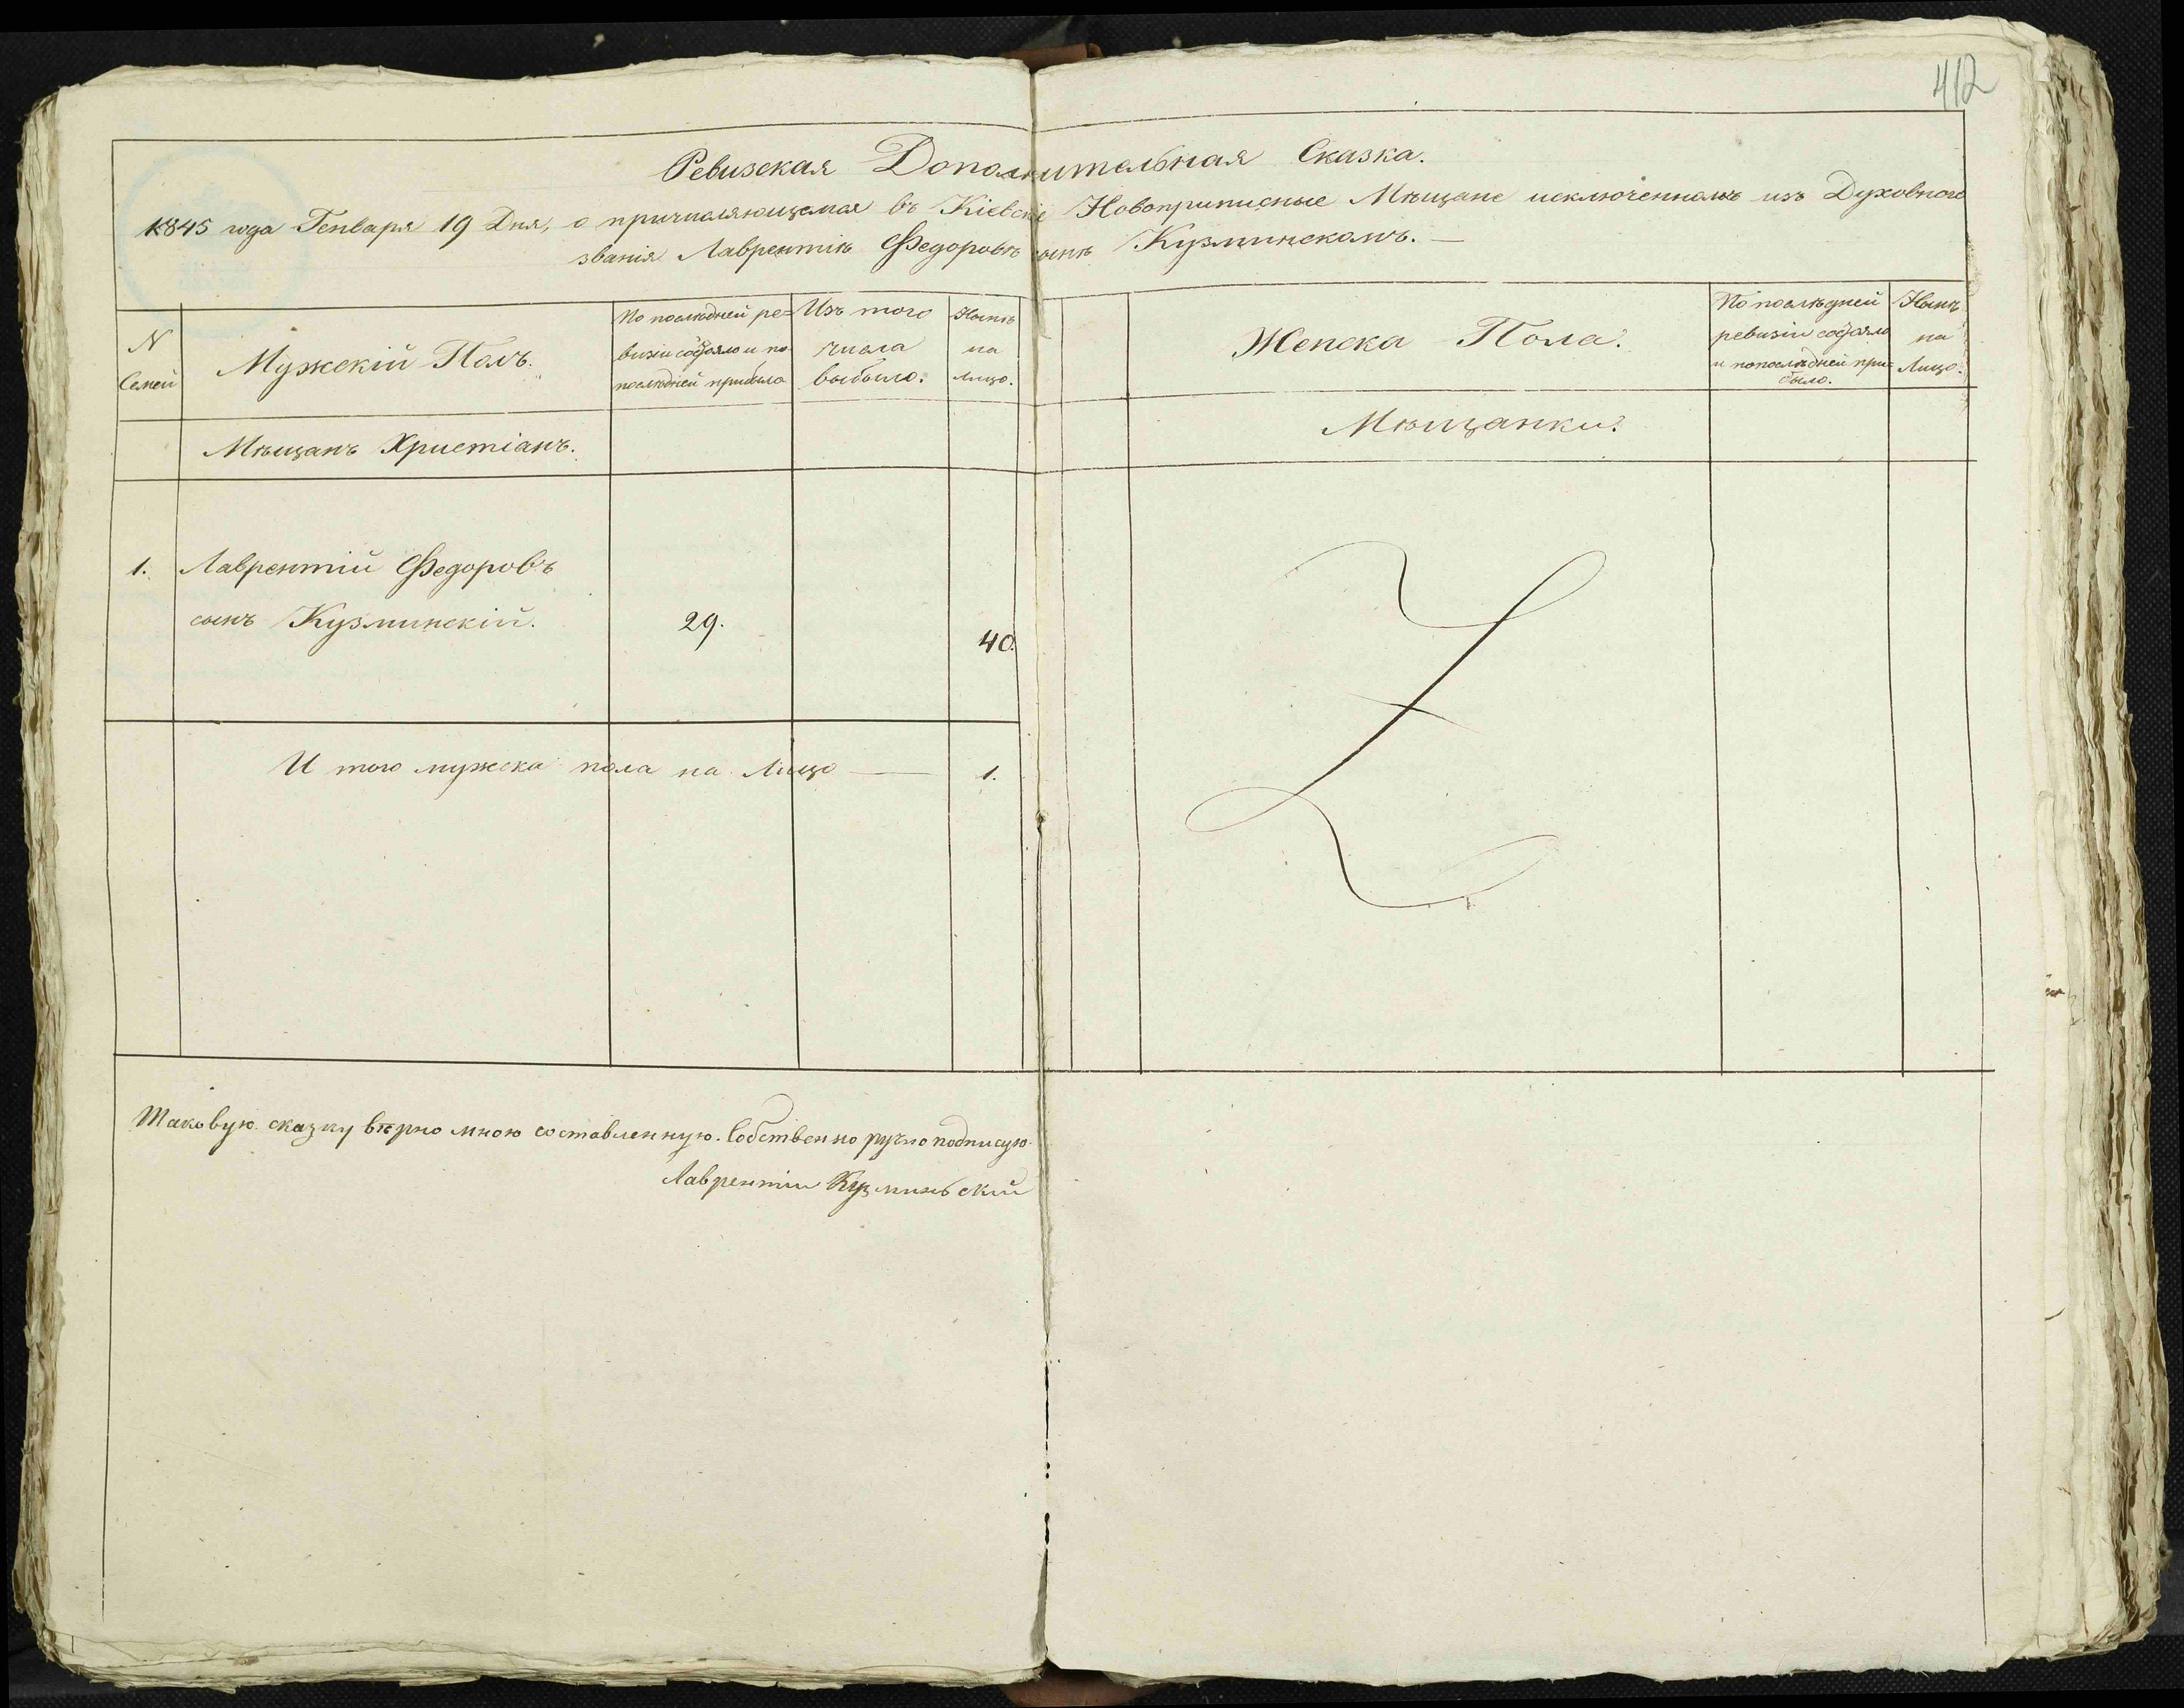 412
Ревизская Дополнительная Сказка.
1845 года Генваря 19 Дня, о причисляющемся въ Кіевскіе Новоприписные Мѣщане исключенномъ изъ Духовного
званія Лаврентіѣ Федоровѣ сынѣ Кузминскомъ. —
N
Семей
Мужескій Полъ.
По послѣдней ре=
визіи состояло и по
послѣдней прибыло
Изъ того
числа
выбыло.
Нынѣ
на
лицо.
Женска Пола.
По послѣдней
ревизіи состояло
и попослѣдней при=
было.
Нынѣ
на
Лицо.
Мѣщанъ Христіанъ.
Мѣщанки.
1. Лаврентій Федоровъ
сынъ Кузминскій. 29. 40.
И того мужеска пола на Лицо — 1.
Таковую сказку вѣрно мною составленную. Собственно ручно подписую
Лаврентіи Кузминьскій